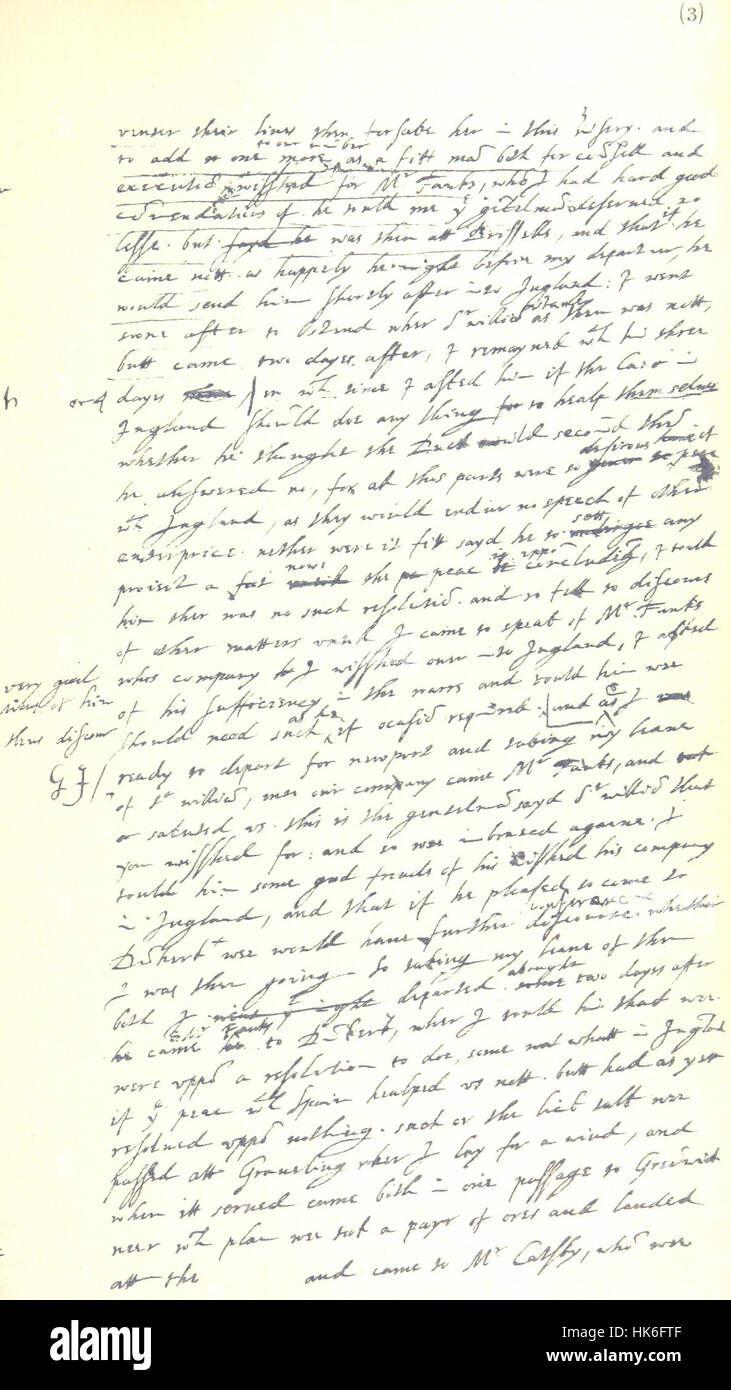 (3)
venter their lives then forsake her in this misery. and
to add to our number
to one more, as a fitt mā both for coūsell and
executiō wisshed for Mr Fauks, whō I had hard good
cōmendatiōs of. he tould me yt gētelmā deserved no
lesse. but was then att Brissells, and that if he
came nott as happely he might before my departur, he
would send him shortly after into Ingland: I went
soone after to Ostend wher Sr williā as then was nott,
butt came two dayes after, I remayned wth him three
or 4 dayes in wch time I asked him if the Cato: in
Ingland should doe any thing to healp themselves
whether he thought the Duck would second thē
he answered no, for all thos parts were so desirous of peace
wth Ingland, as they would endur no speech of other
enterprice. nether were it fitt sayd he to sett any
project a foot now the peac is uppō concluding, I tould
him ther was no such resolutiō. and so fell to discours
of other matters untill I came to speak of Mr Fauks
whos company I wisshed over into Ingland, I asked
very good
of his sufficiency in the warrs and tould him wee
thus discour
should need such as he, if ocasiō required. and as I
ready to depart for newport and taking my leave
of Sr williā, mes our company came Mr Fauks, and
saluted us. this is the gentelmā sayd Sr williā that
you wisshed for: and so wee imbraced againe. I
tould him some good frends of his wisshed his company
in Ingland, and that if he pleased to come to
Dūkerk wee would have further conference
whether
I was then going. So taking my leave of them
both I departed. about two dayes after
he came to Dūkerk, wher I tould him that wee
were uppō a resolution to doe some what in Inglād
if ye peac wth Spain healped us nott. butt had as yett
resolved uppō nothing. such or the lick talk wee
passed att Graveling wher I lay for a wind, and
when itt served came both in one passage to Greēwich
neer wch plac wee took a payr of ores and landed
att the and came to Mr Catsby, whō wee